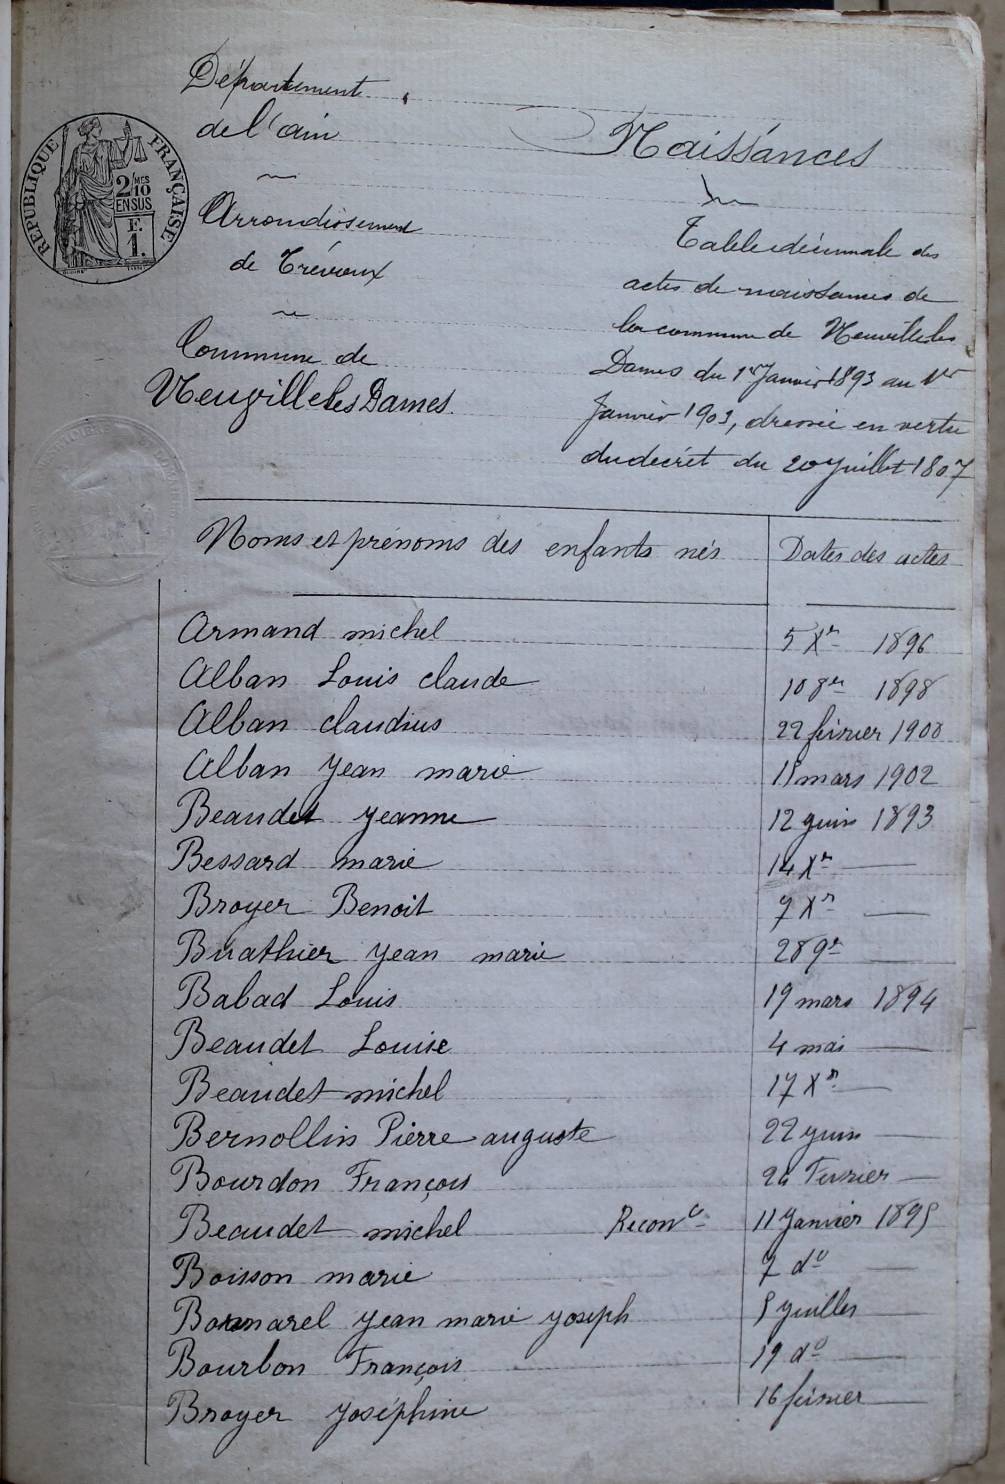 RÉPUBLIQUE FRANÇAISE
2/10 MES
EN SUS
F.
1.
Département
de l'ain
Arrondissement
de Trévoux
Commune de
Neuville les Dames.
Naissances
Table décennale des
actes de naissances de
la commune de Neuville les
Dames du 1er Janvier 1893 au 1er
Janvier 1903, dressée en vertu
du décret du 20 Juillet 1807
Noms et prénoms des enfants nés Dates des actes
Armand michel 5 Xre 1896
Alban Louis claude 10 8re 1898
Alban claudius 22 février 1900
Alban Jean marie mars 1902
Beaudet Jeanne 12 juin 1893
Bessard marie 14 Xre —
Broyer Benoit 7 Xre —
Buathier Jean marie 28 9re —
Babad Louis 19 mars 1894
Beaudet Louise 4 mai —
Beaudet michel 17 Xre —
Bernollin Pierre auguste 22 juin —
Bourdon François Fevrier —
Beaudet michel Reconce 11 Janvier 1895
Boisson marie 7 do —
Bonmarel Jean marie Joseph 5 Juillet —
Bourbon François 19 do —
Broyer Joséphine 16 février —